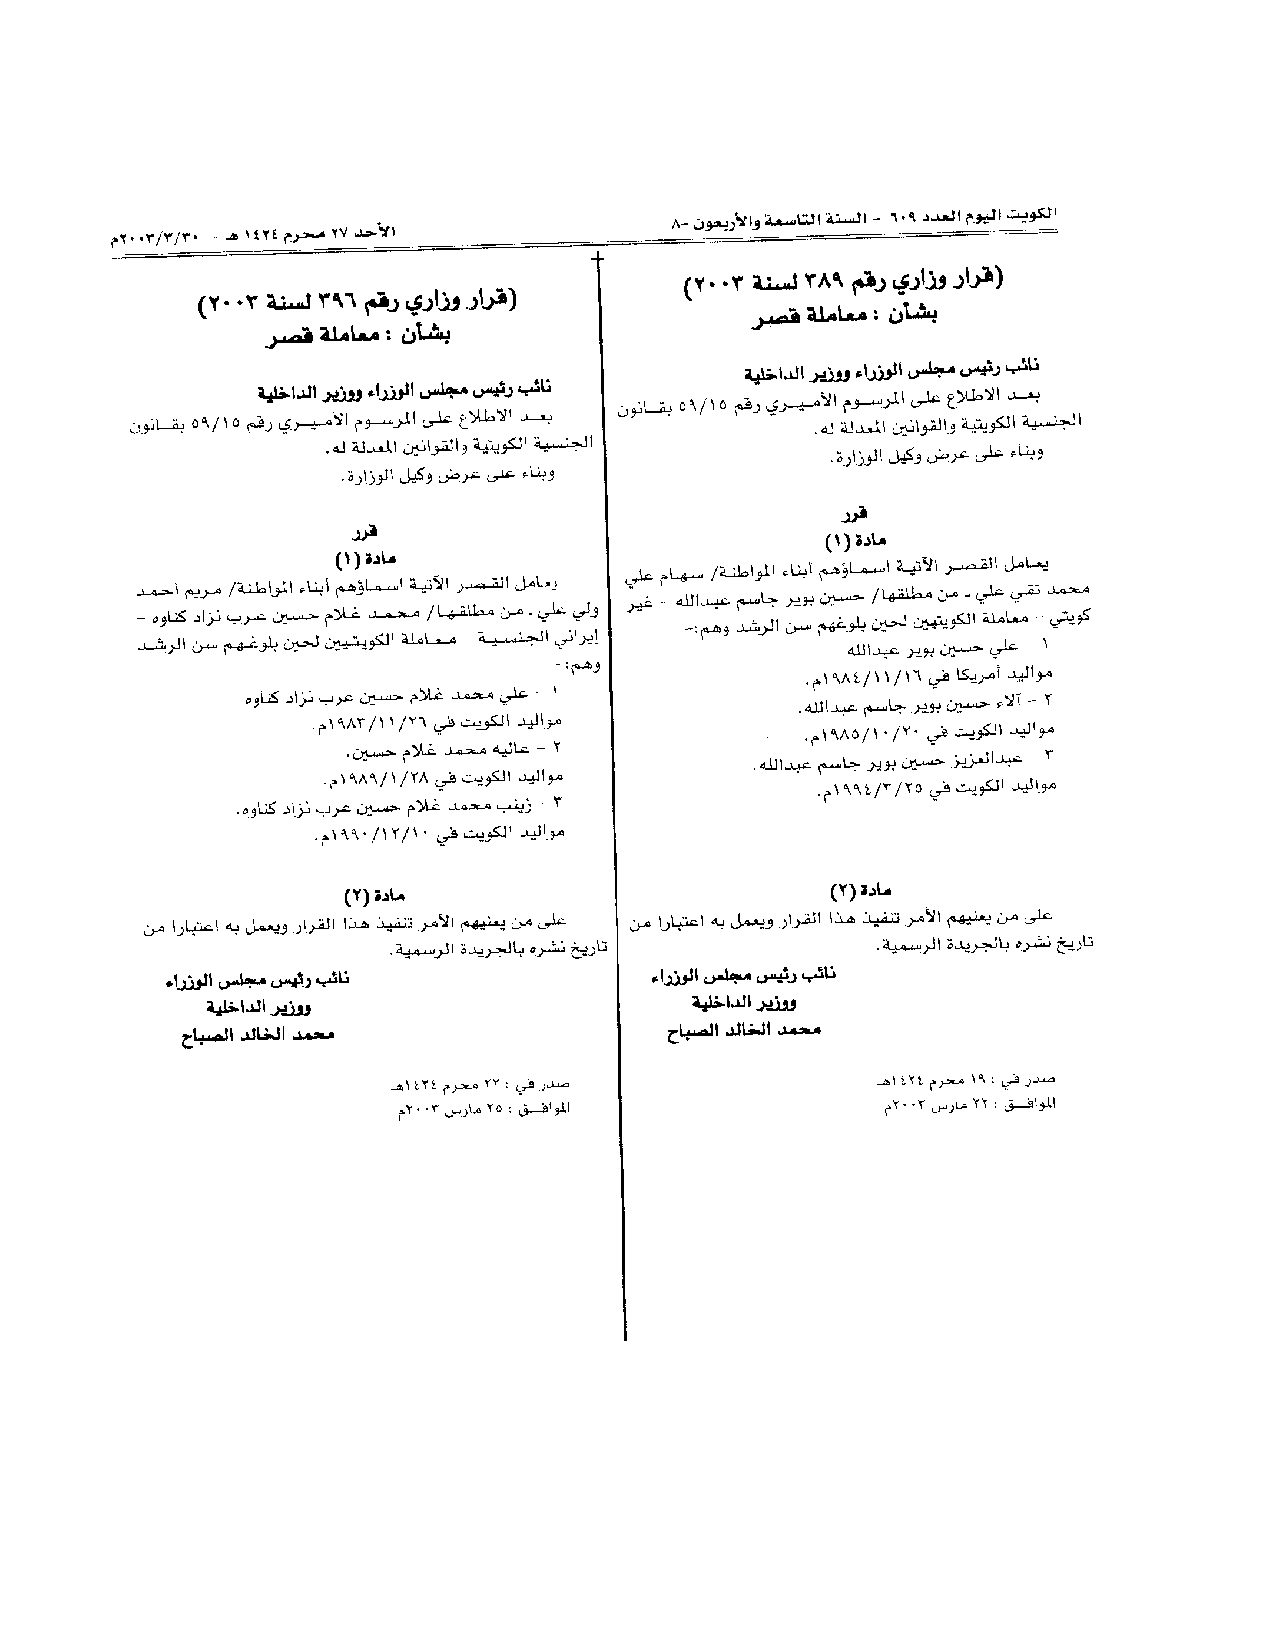 الكويت اليوم العدد ٦٠٩ - السنة التاسعة والأربعون -٨
الأحد ٢٧ محرم ١٤٢٤ هـ - ٢٠٠٣/٣/٣٠م
(قرار وزاري رقم ٣٨٩ لسنة ٢٠٠٣)
بشأن : معاملة قصر
نائب رئيس مجلس الوزراء ووزير الداخلية
بعد الاطلاع على المرسوم الأميري رقم ٥٩/١٥ بقانون
الجنسية الكويتية والقوانين المعدلة له.
وبناء على عرض وكيل الوزارة.
قرر
مادة (١)
يعامل القصر الآتية اسماؤهم أبناء المواطنة/ سهام علي
محمد تقي علي - من مطلقها/ حسين بوير جاسم عبدالله - غير
كويتي - معاملة الكويتيين لحين بلوغهم سن الرشد وهم:-
١ علي حسين بوير عبدالله
مواليد أمريكا في ١٩٨٤/١١/١٦م.
٢ - آلاء حسين بوير جاسم عبدالله.
مواليد الكويت في ١٩٨٥/١٠/٢٠م.
٣ عبدالعزيز حسين بوير جاسم عبدالله.
مواليد الكويت في ١٩٩٤/٣/٢٥م.
مادة (٢)
على من يعنيهم الأمر تنفيذ هذا القرار ويعمل به اعتبارا من
تاريخ نشره بالجريدة الرسمية.
نائب رئيس مجلس الوزراء
ووزير الداخلية
محمد الخالد الصباح
صدر في : ١٩ محرم ١٤٢٤هـ
الموافق : ٢٢ مارس ٢٠٠٣م
(قرار وزاري رقم ٣٩٦ لسنة ٢٠٠٣)
بشأن : معاملة قصر
نائب رئيس مجلس الوزراء ووزير الداخلية
بعد الاطلاع على المرسوم الأميري رقم ٥٩/١٥ بقانون
الجنسية الكويتية والقوانين المعدلة له.
وبناء على عرض وكيل الوزارة.
قرر
مادة (١)
يعامل القصر الآتية اسماؤهم أبناء المواطنة/ مريم أحمد
ولي علي - من مطلقها/ محمد غلام حسين عرب نژاد كناوه -
إيراني الجنسية معاملة الكويتيين لحين بلوغهم سن الرشد
وهم:-
١ - علي محمد غلام حسين عرب نزاد كناوه
مواليد الكويت في ١٩٨٣/١١/٢٦م.
٢ - عاليه محمد غلام حسين.
مواليد الكويت في ١٩٨٩/١/٢٨م.
٣ - زينب محمد غلام حسين عرب نزاد كناوه.
مواليد الكويت في ١٩٩٠/١٢/١٠م.
مادة (٢)
على من يعنيهم الأمر تنفيذ هذا القرار ويعمل به اعتبارا من
تاريخ نشره بالجريدة الرسمية.
نائب رئيس مجلس الوزراء
ووزير الداخلية
محمد الخالد الصباح
صدر في : ٢٢ محرم ١٤٢٤هـ
الموافق : ٢٥ مارس ٢٠٠٣م